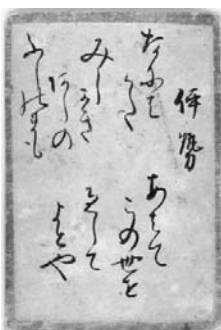 伊勢
なには
かた
みしかき
あしの
ふしのまも
あはて
この世を
して
よとや